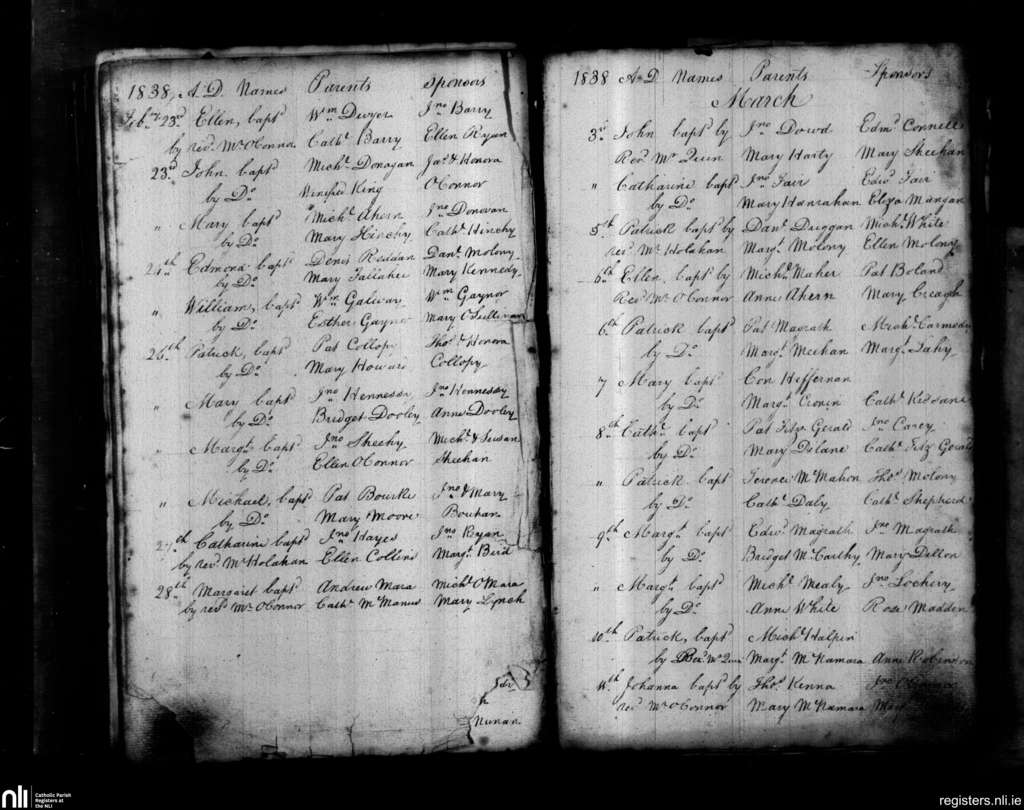 1838, A.D. Names Parents Sponsors
Feb.ry 23d Ellen, bapd Wm Dwyer Jno Barry
by revd. Mr O'Connor Cathe. Barry Ellen Ryan
23d John. bapd Michl. Donagan Jas. & Honora
by Do. Winefred King O'Connor
" Mary, bapd Michl. Ahern Jno Donovan
by Do. Mary Hinchy Cathe. Hinchy
24th Edmond bapd Denis Reddan Danl. Molony
by Do. Mary Fallahee Mary Kennedy
" William, bapd Wm Galway Wm Gaynor
by Do. Esther Gaynor Mary O'Sullivan
26th Patrick, bapd Pat Collopy Thos. & Honora
by Do. Mary Howard Collopy
" Mary bapd Jno Hennessy Jno Hennessy
by Do. Bridget Dooley Anne Dooley
" Margt. bapd Jno Sheehy Michl. & Susan
by Do. Ellen O'Connor Sheehan
" Michael, bapd Pat Bourke Jno & Mary
by Do. Mary Moore
27th Catharine bapd Jno Hayes Jno Ryan
by revd. Mr Holahan Ellen Collins Margt. Bird
28th Margaret bapd Andrew Mara Michl. O'Mara
by revd Mr. O'Connor Cathe. McManus Mary Lynch
Nunan
1838 A.D Names Parents Sponsors
March
3d John bapd by Jno Dowd Edmd Connell
Revd Mr. Quin Mary Harty Mary Sheehan
" Catharine bapd Jno Fair Edwd. Fair
by Do. Mary Hanrahan Eliza Mangan
5th Patrick bapd by Danl. Duggan Michl. White
revd. Mr Holahan Margt. Molony Ellen Molony
6th Ellen, bapd by Michl. Maher Pat Boland
Revd Mr O'Connor Anne Ahern Mary Creagh
6th Patrick bapd Pat Magrath Michl. Carmody
by Do. Margt. Meehan Margt. Fahy
7 Mary bapd Con Heffernan
by Do. Margt. Cronin Cathe.
8th Cathe. bapd Pat Fitz Gerald Jno Carey
by Do. Mary Delane Cathe. Fitz Gerald
" Patrick bapd Terence McMahon Thos. Molony
by Do. Cathe. Daly Cathe. Shepherd
9th Margt. bapd Edwd. Magrath Jno Magrath
by Do. Bridget McCarthy Mary Dillon
" Margt. bapd Michl. Mealy Jno Lochery
by Do. Anne White Rose Madden
10th Patrick, bapd Michl Halpin
by Revd. Mr Quin Margt. McNamara Anne Robinson
11th Johanna bapd by Thos. Kenna Jno O'Connor
revd Mr O'Connor Mary McNamara
nli Catholic Parish
Registers at
the NLI
registers.nli.ie